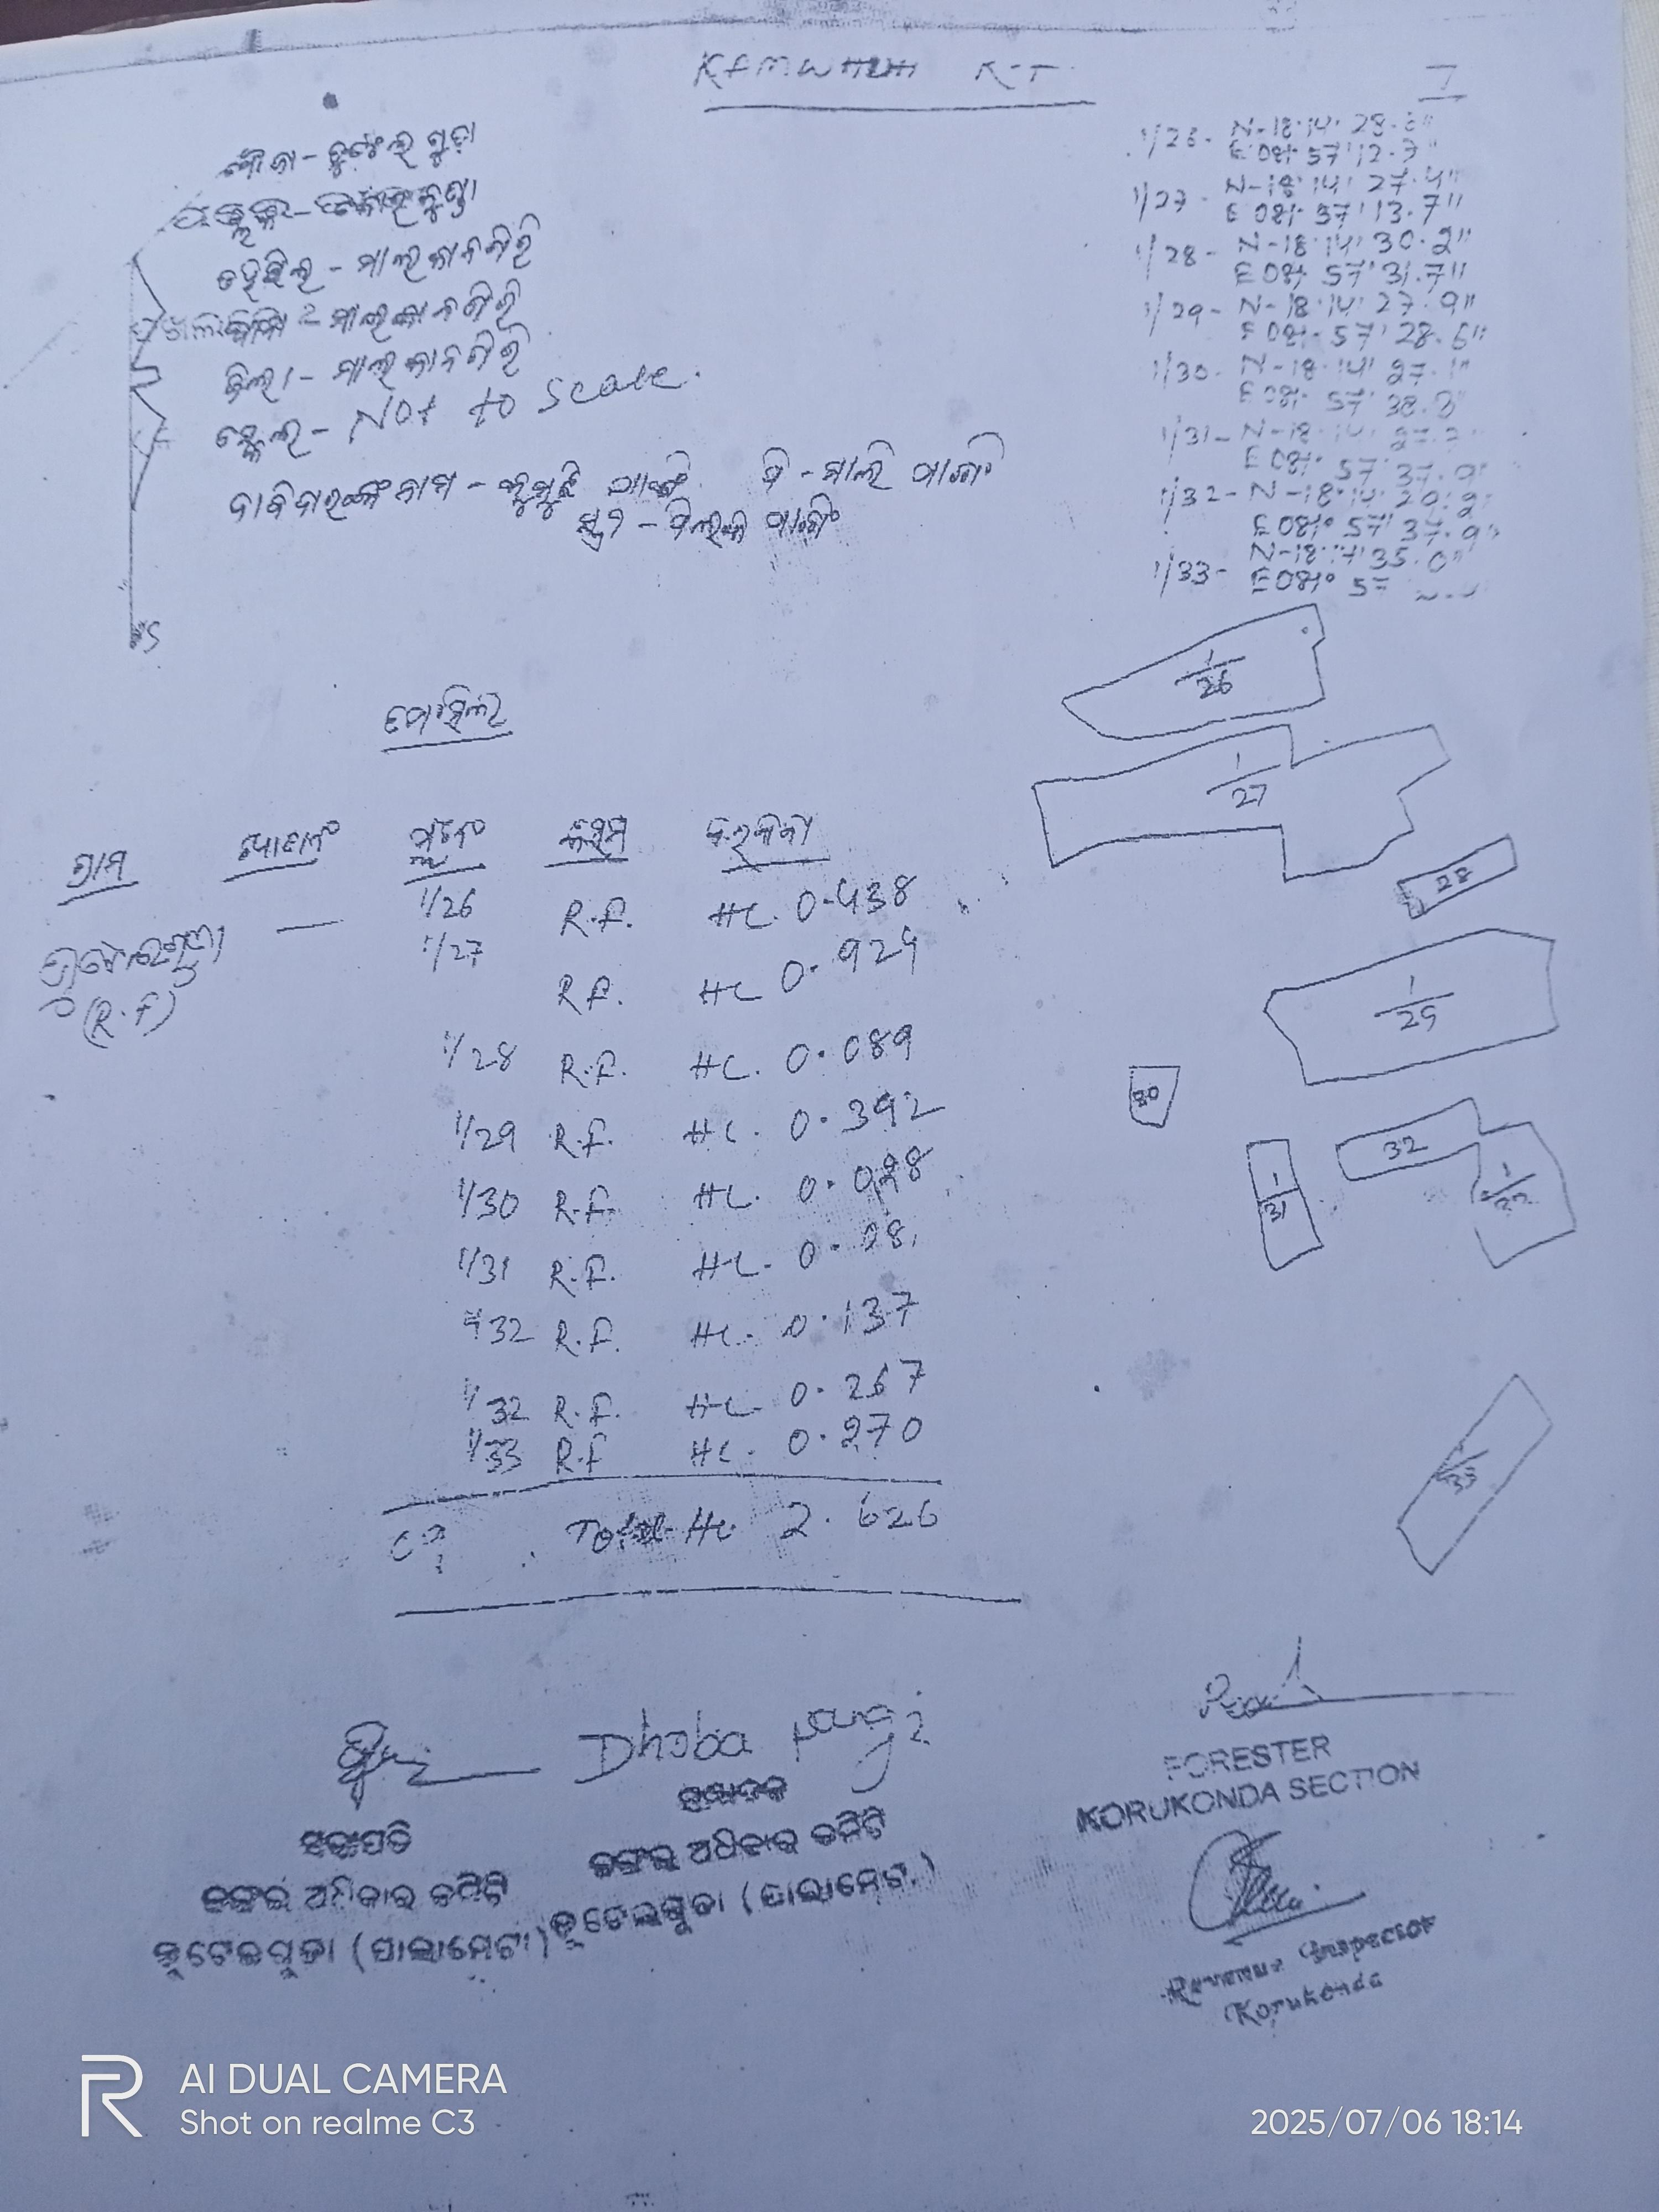 7
ମୌଜା - କୁଟେଲ ଗୁଡ଼ା
ତହସିଲ - ମାଲକାନଗିରି
ମାଲକାନଗିରି
ଜିଲା - ମାଲକାନଗିରି
ସ୍କେଲ - Not to Scale.
ଦାବିଦାରଙ୍କ ନାମ - ପି - ମାଲି ପାଙ୍ଗି
1/26 - N-18·14' 28.
E 081 57' 12.7"
1/27 - N-18' 14' 27.4"
E 081· 57' 13.7"
1/28 - N-18·14' 30.2"
E 081 57' 31.7"
1/29 - N-18·14' 27.9"
E 081- 57' 28.6"
1/30 - N-18·14' 27.1"
E 081· 57' 38.
1/31 - N-18·14'
E 081° 57' 37.9
1/32 - N-18·14' 20.2
E 081° 57' 37.9"
1/33 - N-18·14' 35.0"
E 081° 57
1/26
1/27
28
1/29
30
1/31
32
1/32
1/33
ଗ୍ରାମ ପ୍ଲଟନଂ କିସମ
(R.F)
1/26 R.F. HC. 0.438
1/27 R.F. HC 0.924
1/28 R.F. HC. 0.089
1/29 R.F. HC. 0.392
1/30 R.F. HC.
1/31 R.F. HC.
1/32 R.F. HC. 0.137
1/32 R.F. HC. 0.267
1/33 R.F HC. 0.270
Total Hc. 2.626
Dhoba pangi
ସଭାପତି
ଜଙ୍ଗଲ ଅଧିକାର କମିଟି
କୁଟେଲଗୁଡା (ପାଲାମେଟା)
ସମ୍ପାଦକ
ଜଙ୍ଗଲ ଅଧିକାର କମିଟି
କୁଟେଲଗୁଡା (ପାଲାମେଟା)
FORESTER
KORUKONDA SECTION
Revenue Inspector
Korukonda
AI DUAL CAMERA
Shot on realme C3
2025/07/06 18:14